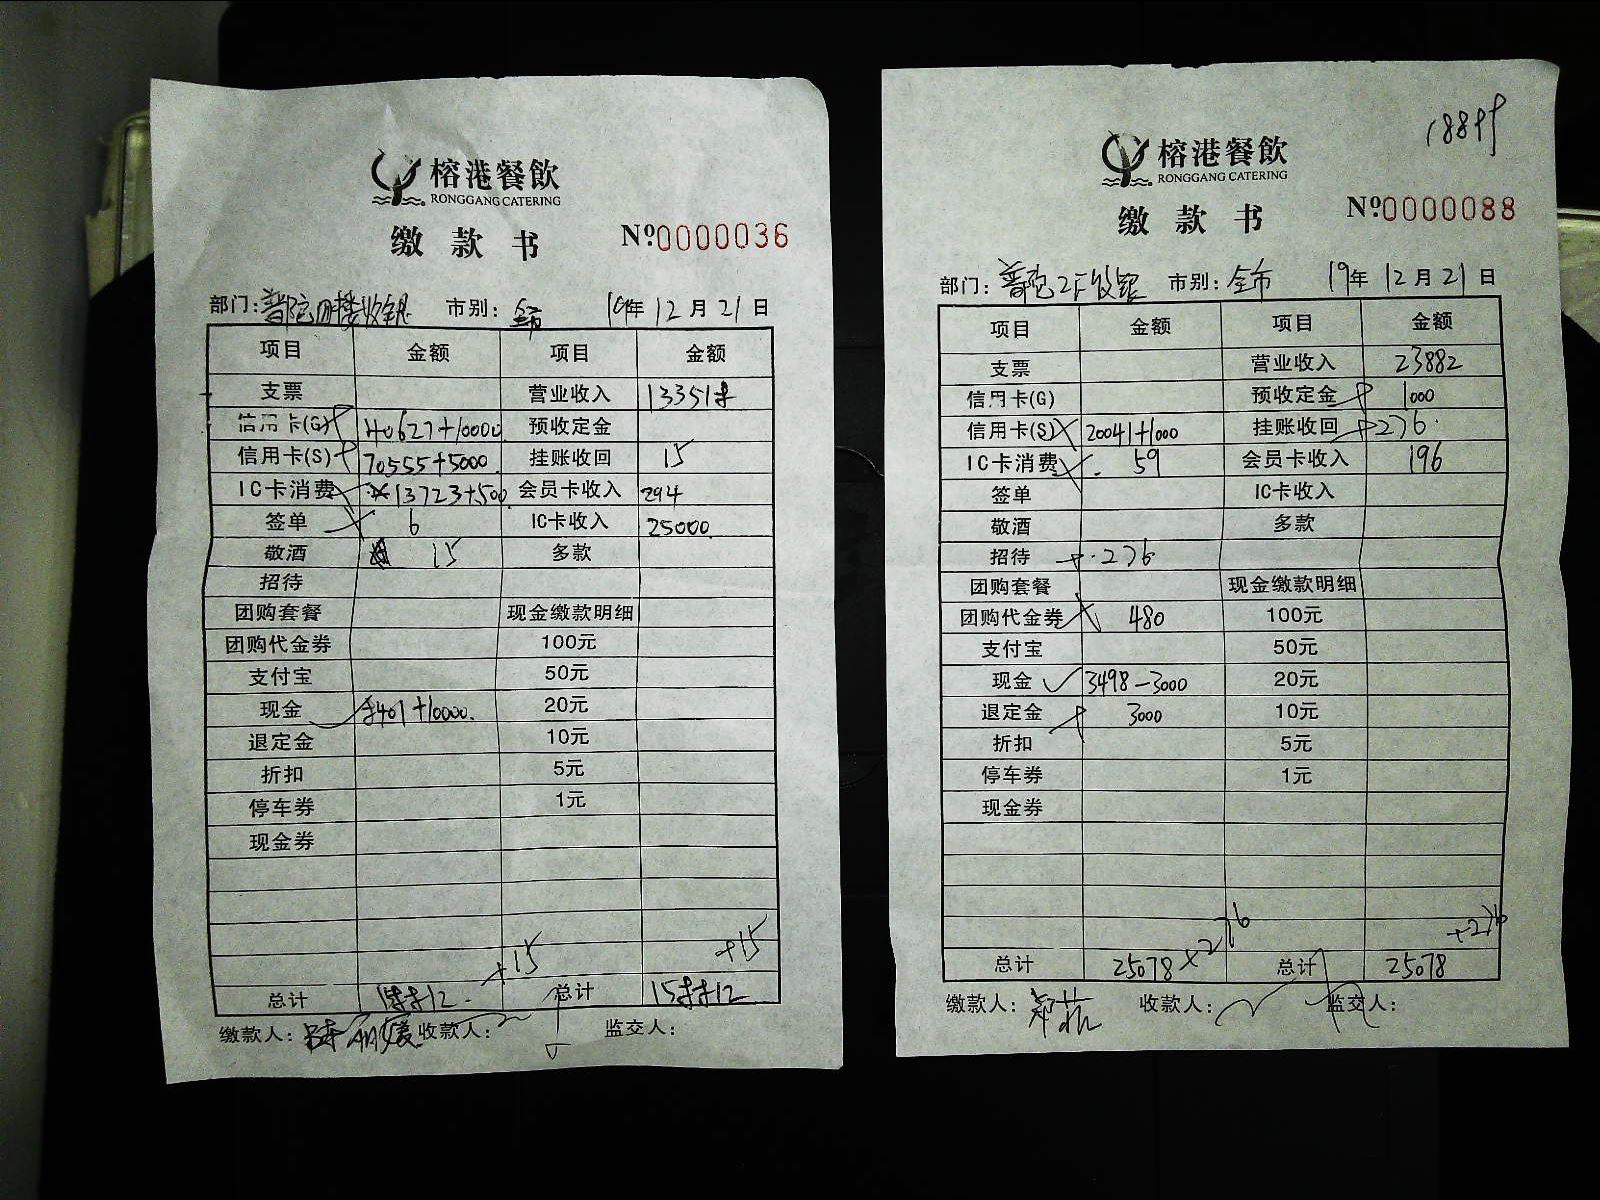 榕港餐飲
RONGGANG CATERING
缴款书
Nº0000036
部门：普陀四楼收银 市别：全市 19年12月21日
项目 金额 项目 金额
支票 营业收入
信用卡(G) 40627+10000 预收定金
信用卡(S) 70555+5000 挂账收回 15
IC卡消费 13723+500 会员卡收入 294
签单 6 IC卡收入 25000
敬酒 15 多款
招待
团购套餐 现金缴款明细
团购代金券 100元
支付宝 50元
现金 20元
退定金 10元
折扣 5元
停车券 1元
现金券
+15 +15
总计 总计
缴款人： 收款人： 监交人：
18899
榕港餐飲
RONGGANG CATERING
缴款书
Nº0000088
部门：普陀2F收银 市别：全市 19年12月21日
项目 金额 项目 金额
支票 营业收入 23882
信用卡(G) 预收定金 1000
信用卡(S) 20041+1000 挂账收回 276
IC卡消费 59 会员卡收入 196
签单 IC卡收入
敬酒 多款
招待 276
团购套餐 现金缴款明细
团购代金券 480 100元
支付宝 50元
现金 3498-3000 20元
退定金 3000 10元
折扣 5元
停车券 1元
现金券
+276
总计 25078 276 总计 25078
缴款人： 收款人： 监交人：